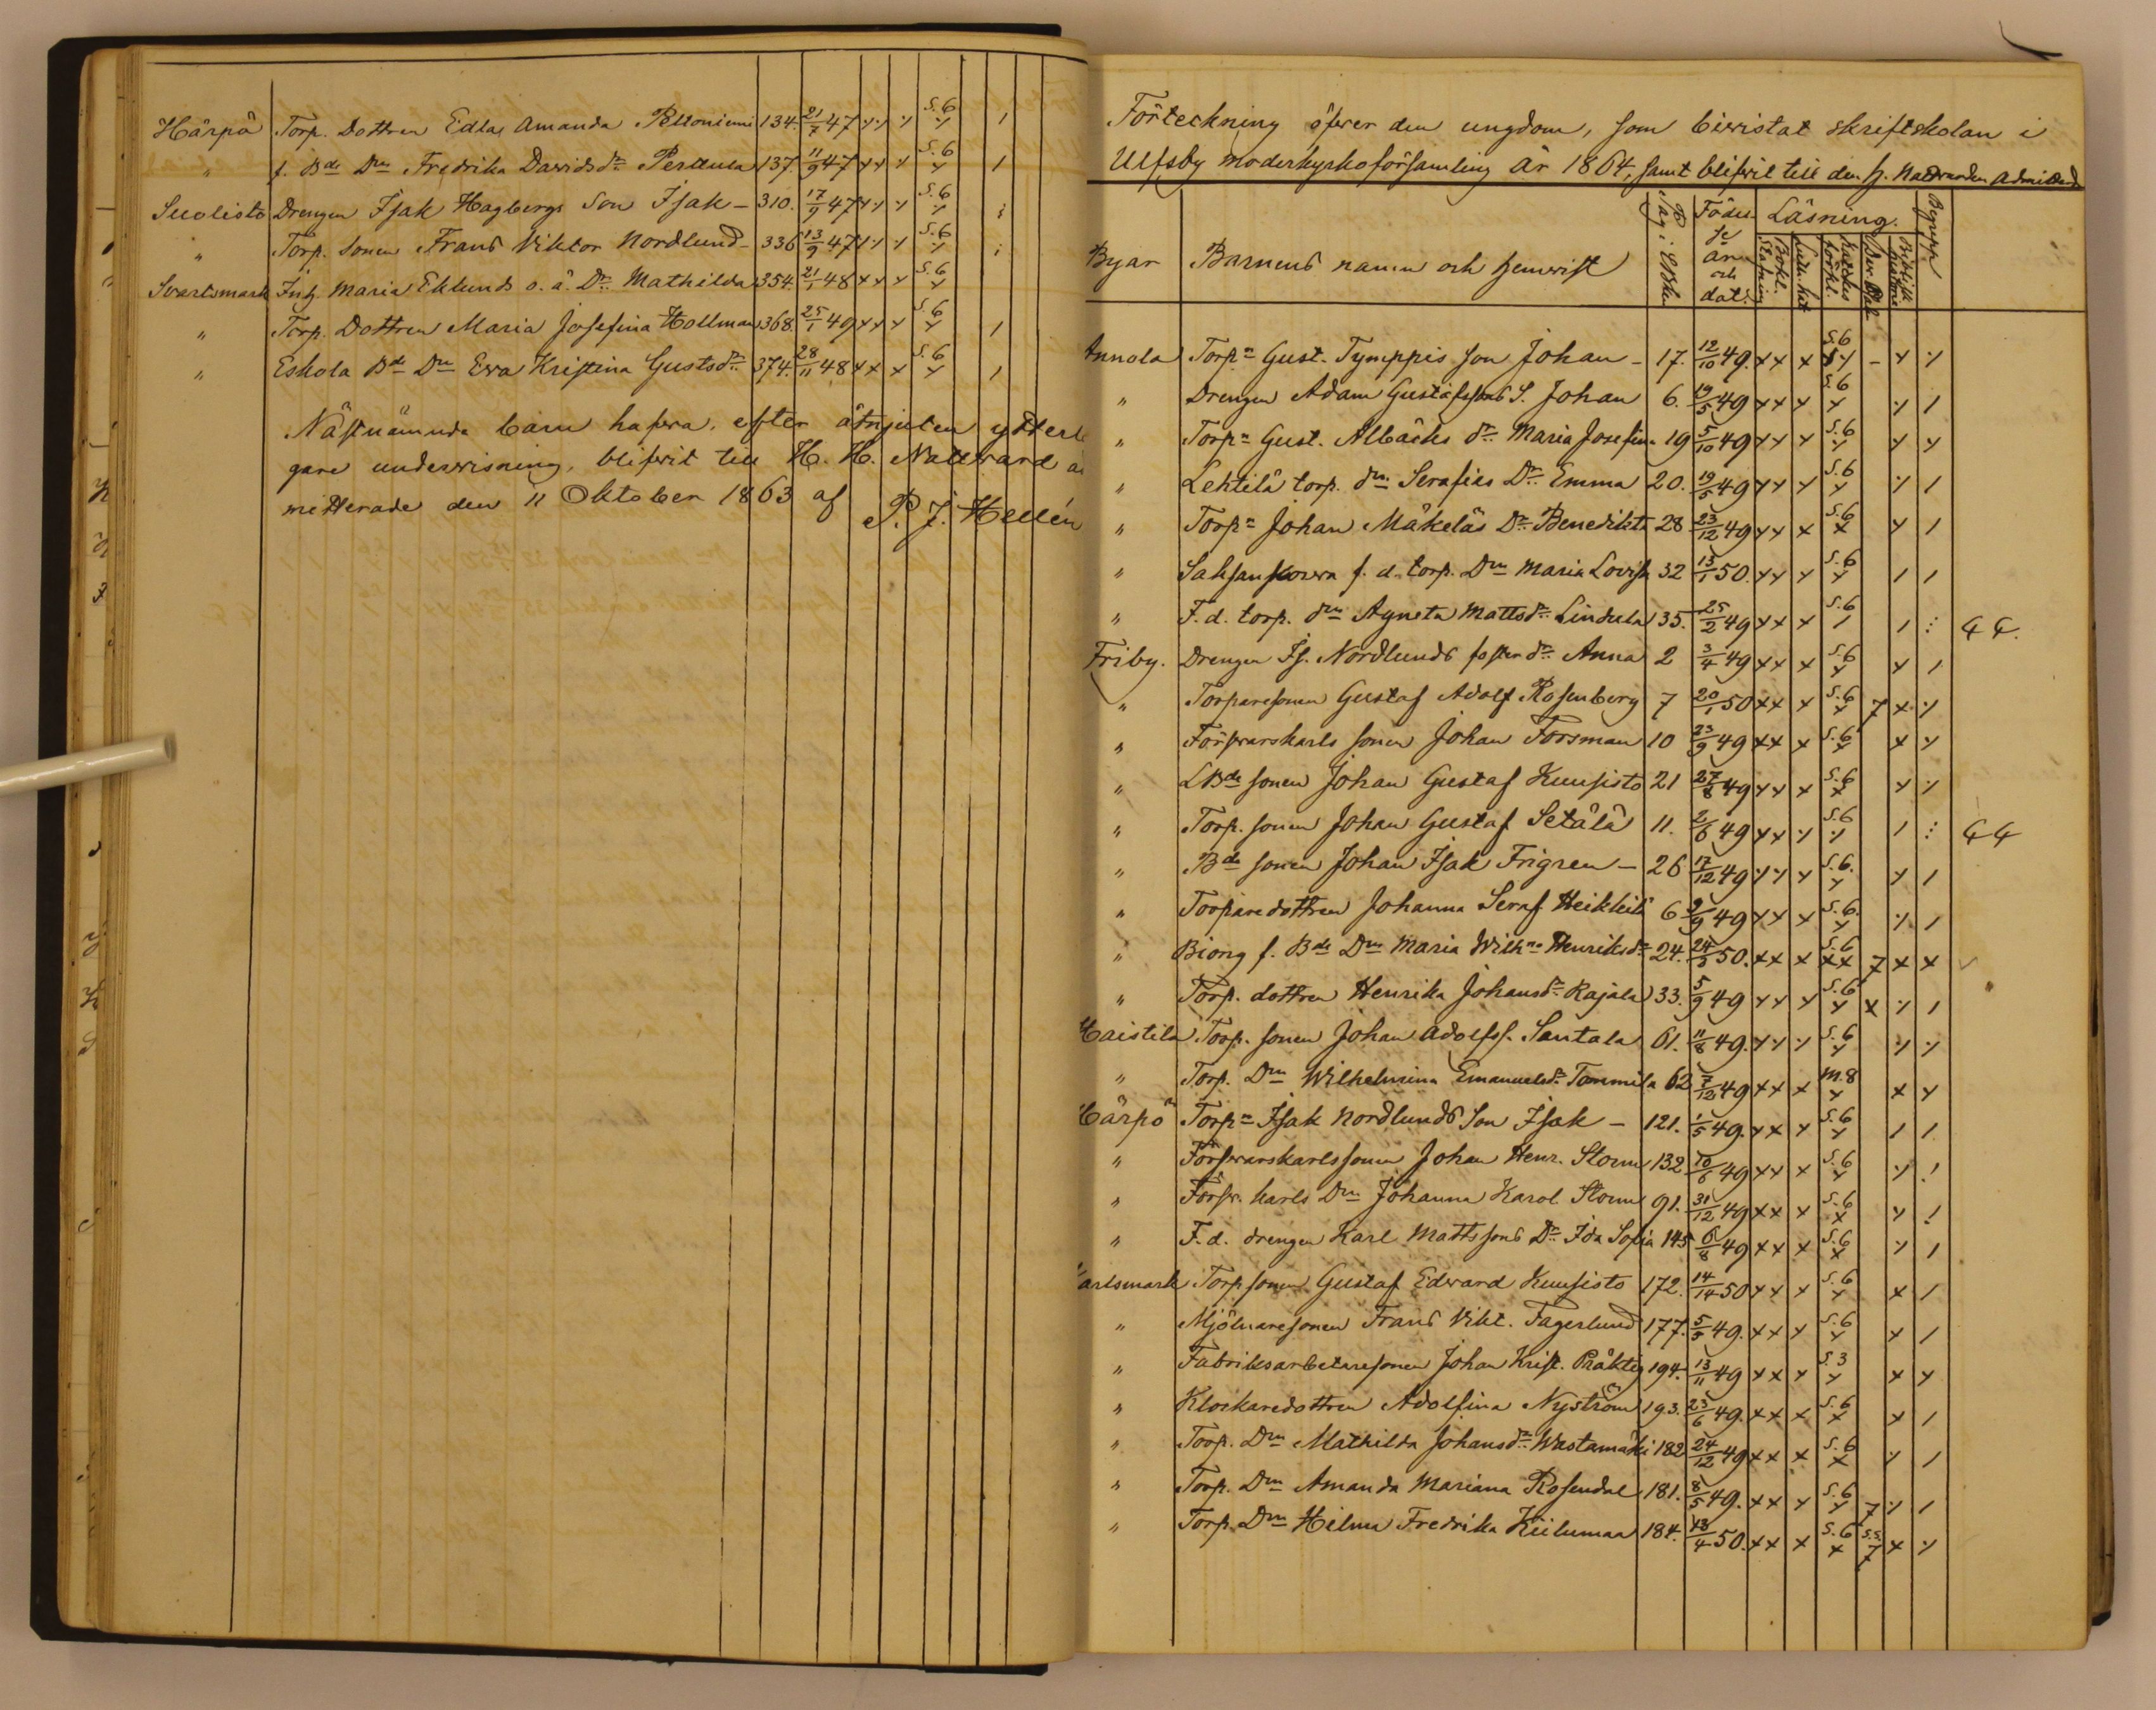 Härpö Torp. Dottren Edla Amanda Peltoniemi 134. 21/7 47 S.6
" f. Bde Drn Fredrika Davidsdr Perttula 137. 11/9 47 S.6
Suolisto Drengen Isak Hagbergs Son Isak – 310. 17/9 47 S.6
" Torp. Sonen Frans Viktor Nordlund – 336 13/9 47 S.6
Svartsmark Inh. Maria Eklunds o. ä. Dr Mathilda 354. 21/1 48 S.6
" Torp. Dottren Maria Josefina Hollman 368. 25/1 49 S.6
" Eskola Bde Drn Eva Kristina Gustsdr 374. 28/11 48 S.6
Nästnämnda barn hafva, efter åtnjuten ytterli
gare undervisning, blifvit till H. H. Nattvard ad
mitterade den 11 Oktober 1863 af P. J. Hellén
Förteckning öfver den ungdom, som bivistat skriftskolan i
Ulfsby moderkyrkoförsamling år 1864, samt blifvit till den h. Nattvarden admitterad
Byar Barnens namn och hemvist Pag i Läsning. Begrepp
Annola Torpn Gust. Tymppis son Johan – 17. 12/10 49. x x x S.6 – x
" Drengen Adam Gustafssons S. Johan 6. 19/5 49 S.6
" Torpn Gust. Albäcks dr Maria Josefina 19 5/10 49 S.6
" Lehtilä torp. drn Serafias Dr Emma 20. 19/5 49 S.6
" Torpn Johan Mäkeläs Dr Benedikta 28 23/12 49 S.6
" Saksankorva f. d. torp. Drn Maria Lovisa 32 13/1 50. S.6
" F. d. torp. drn Agneta Mattsdr Lindula 35. 25/2 49 S.6 G G.
Friby. Drengen Is. Nordlunds foster dr Anna 2 3/4 49 S.6
" Torparesonen Gustaf Adolf Rosenberg 7 20/1 50 S.6 7
" Försvarskarls sonen Johan Forsman 10 23/9 49 S.6
" LBde sonen Johan Gustaf Kuusisto 21 27/8 49 S.6
" Torp. sonen Johan Gustaf Setälä 11. 2/6 49 S.6 G G
" Bde sonen Johan Isak Frigren – 26 17/12 49 S.6.
" Torparedottren Johanna Seraf. Heikkilä 6 2/9 49 S.6.
" Biong f. Bde Drn Maria Wilhna Henriksdr 24. 50. S.6 7
" Torp. dottren Henrika Johansdr Rajala 33. 5/9 49 S.6
Haistila Torp. sonen Johan Adolfss. Santala 61. 11/8 49. S.6
" Torp. Drn Wilhelmina Emanuelsdr Tommila 62 7/12 49 M.8
Härpö Torpn Isak Nordlunds Son Isak – 121. 1/5 49. S.6
" Försvarskarlssonen Johan Henr. Storm 132 10/6 49 S.6
" Försv. karls Drn Johanna Karol. Storm 91. 31/12 49 S.6
" F. d. drengen Karl Mattssons Dr Ida Sofia 145 6/8 49 S.6
artsmark Torp sonen Gustaf Edvard Kuusisto 172. 14/14 50 S.6
" Mjölnaresonen Frans Vikt. Fagerlund 177. 5/5 49. S.6
" Fabriksarbetaresonen Johan Krist. Präktig 194. 13/11 49 S.3
" Klockaredottren Adolfina Nyström 193. 23/6 49. S.6
" Torp. Drn Mathilda Johansdr Wastamäki 182 24/12 49 S.6
" Torp. Drn Amanda Mariana Rosendal 181. 8/5 49. S.6 7
" Torp. Drn Hilma Fredrika Kiilumaa 184. 18/4 50. S.6 S.S. 7